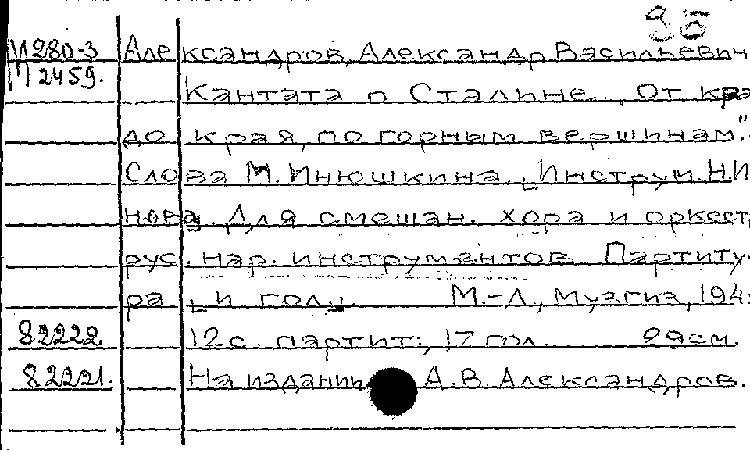 98
М280-3 Александров, Александр Васильевич
М2459. Кантата о Сталине. „От края
до края, по горным вершинам."
Слова М. Инюшкина. [Инструм. Н.И
нова. Для смешан. хора и оркест
рус. нар. инструментов. Партиту-
ра [и гол.]. М.-Л., Музгиз, 194
82222. 12с. партит., 17 гол. 29см.
82221. На издании А.В. Александров.